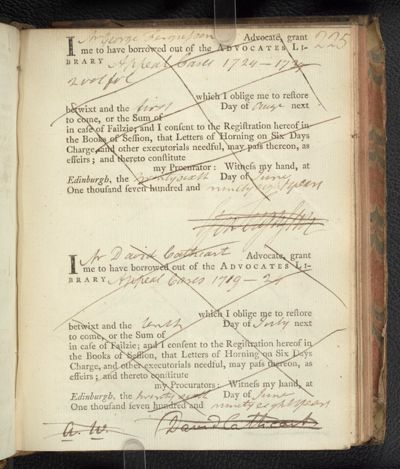 225
I Mr George Fergusson Advocate, grant
me to have borrowed out of the ADVOCATES LI-
BRARY Appeal Cases 1724—
2 vol fol
which I oblige me to reſtore
betwixt and the first Day of Augt next
to come, or the Sum of
in caſe of Failzie; and I conſent to the Regiſtration hereof in
the Books of Seſſion, that Letters of Horning on Six Days
Charge, and other executorials needful, may paſs thereon, as
effeirs; and thereto conſtitute
my Procurator: Witneſs my hand, at
Edinburgh, the twenty sixth Day of June
One thouſand ſeven hundred and ninety years
I Mr David Cathcart Advocate, grant
me to have borrowed out of the ADVOCATES LI-
BRARY Appeal Cases 1719—
which I oblige me to reſtore
betwixt and the tenth Day of July next
to come, or the Sum of
in caſe of Failzie; and I conſent to the Regiſtration hereof in
the Books of Seſſion, that Letters of Horning on Six Days
Charge, and other executorials needful, may paſs thereon, as
effeirs; and thereto conſtitute
my Procurators: Witneſs my hand, at
Edinburgh, the Day of June
One thouſand ſeven hundred and ninety eight years
A. W. David Cathcart